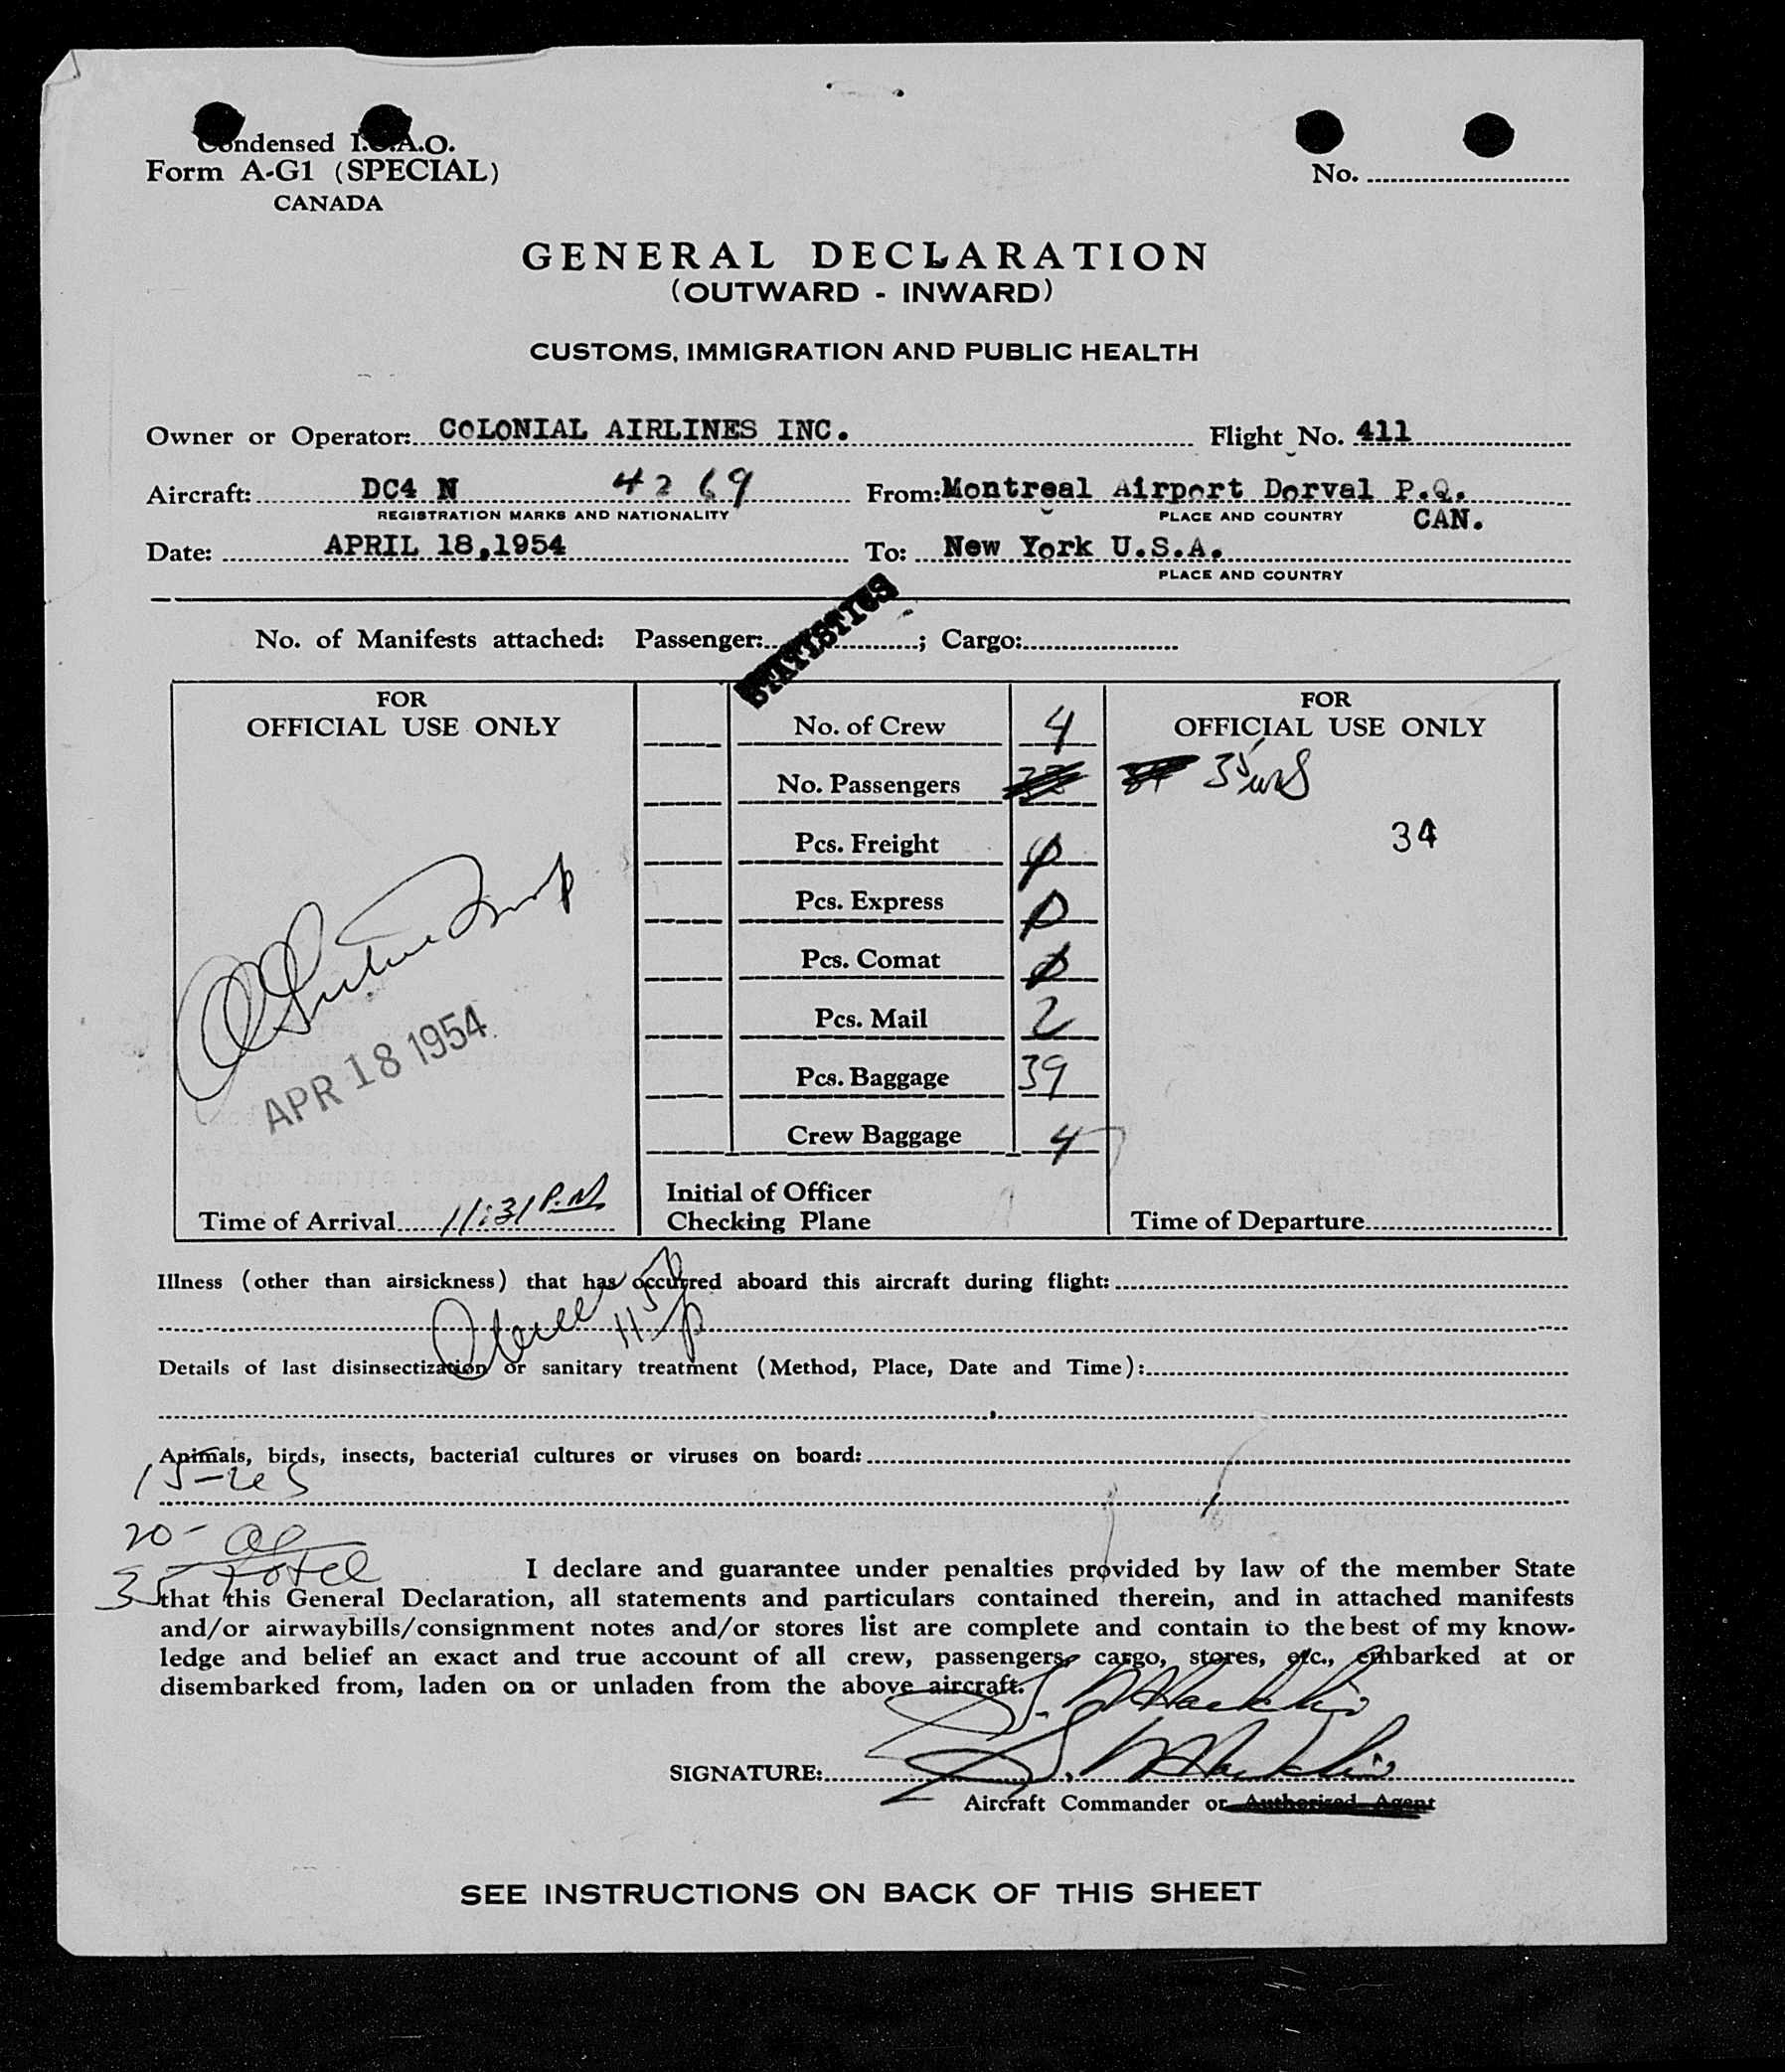 Condensed I.C.A.O.
Form A-G1 (SPECIAL)
CANADA
No.
GENERAL DECLARATION
(OUTWARD - INWARD)
CUSTOMS, IMMIGRATION AND PUBLIC HEALTH
Owner or Operator: COLONIAL AIRLINES INC. Flight No. 411
Aircraft: DC4 N 4269 From: Montreal Airport Dorval P.Q.
REGISTRATION MARKS AND NATIONALITY PLACE AND COUNTRY CAN.
Date: APRIL 18,1954 To: New York U.S.A.
PLACE AND COUNTRY
STATISTICS
No. of Manifests attached: Passenger: ; Cargo:
FOR
OFFICIAL USE ONLY
No. of Crew 4
No. Passengers
Pcs. Freight
Pcs. Express
Pcs. Comat
Pcs. Mail 2
Pcs. Baggage 39
Crew Baggage 4
FOR
OFFICIAL USE ONLY
35
34
APR 18 1954
Time of Arrival 11:31 P.M
Initial of Officer
Checking Plane
Time of Departure
Illness (other than airsickness) that has occurred aboard this aircraft during flight:
Details of last disinsectization or sanitary treatment (Method, Place, Date and Time):
Animals, birds, insects, bacterial cultures or viruses on board:
15-
20-
35 total
I declare and guarantee under penalties provided by law of the member State
that this General Declaration, all statements and particulars contained therein, and in attached manifests
and/or airwaybills/consignment notes and/or stores list are complete and contain to the best of my know-
ledge and belief an exact and true account of all crew, passengers, cargo, stores, etc., embarked at or
disembarked from, laden on or unladen from the above aircraft.
SIGNATURE:
Aircraft Commander or Authorized Agent
SEE INSTRUCTIONS ON BACK OF THIS SHEET